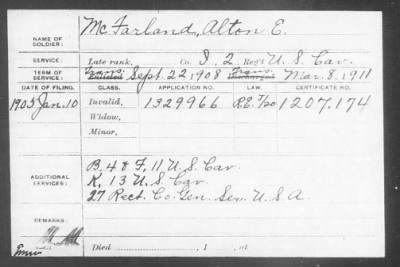 NAME OF SOLDIER: McFarland, Alton E.
SERVICE: Late rank, Co. I, 2 Reg't U.S. Cav.
TERM OF SERVICE: Trans. Enlisted Sept. 22, 1908 Trans. Discharged Mar. 8, 1911
DATE OF FILING. CLASS. APPLICATION NO. LAW. CERTIFICATE NO.
1905 Jan. 10 Invalid, 1329966 R.E. 7/20 1207.174
Widow,
Minor,
ADDITIONAL SERVICES:
B, 4 & F, 11 U.S. Cav
K, 13 U.S. Cav.
27 Rect. Co. Gen. Ser. U.S.A.
REMARKS:
Died , 1 , at